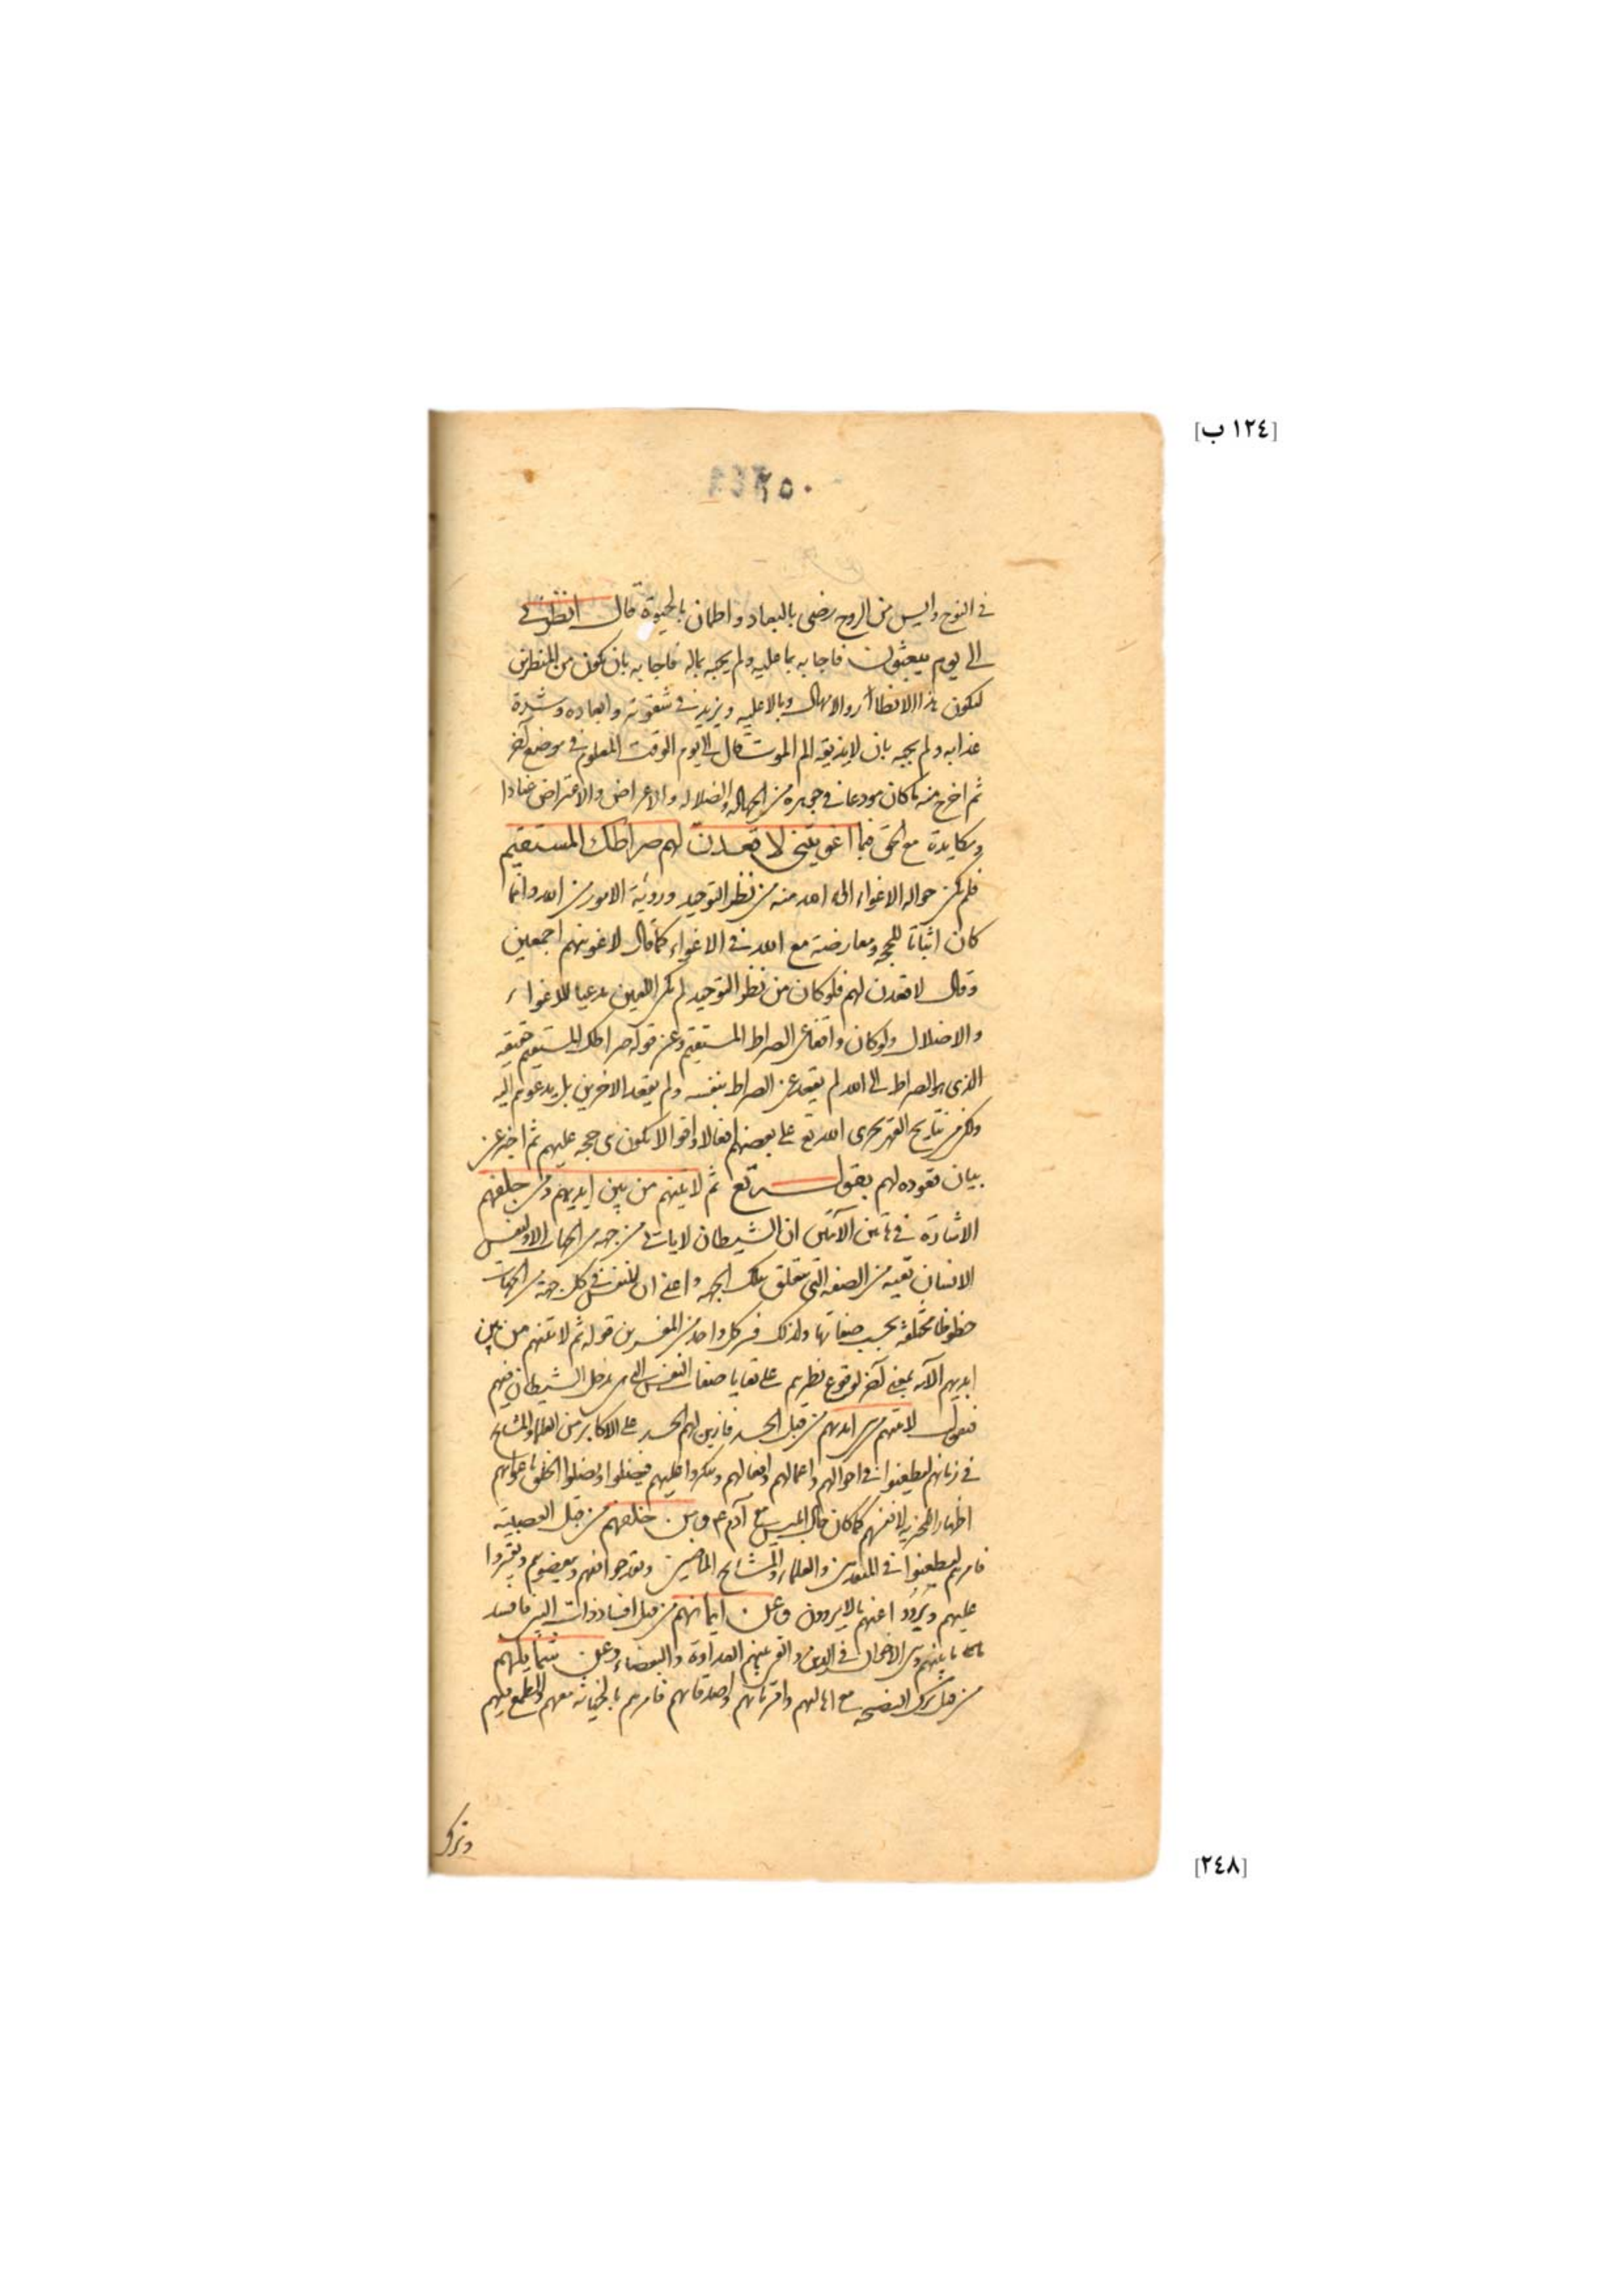 [١٢٤ ب]
٢٥٠
في النوح وايس من الروح رضى بالبعاد واطمان بالحيوة قال انظرني
الى يوم يبعثون فاجابه بما عليه ولم يجبه بماله فاجابه بان تكون من المنظرين
ليكون هذا الانظار والامهال وبالا عليه ويزيد في شقوته وابعاده وشدة
عذابه ولم يجبه بان لا يذيقه الم الموت قال الى يوم الوقت المعلوم في موضع آخر
ثم اخرج منه ما كان مودعا في جوهره من الجهالة والضلالة والاعراض والاعتراض عنادا
ومكايدة مع الحق فبما اغويتنى لاقعدن لهم صراطك المستقيم
فلم يكن حواله الاغواء الى الله منه من نظر التوحيد وروية الامور من الله وانما
كان اثباتا للحجه ومعارضة مع الله في الاغواء كما قال لاغوينهم اجمعين
وقال لاقعدن لهم فلو كان من نظر التوحيد لم يكن اللعين مدعيا للاغواء
والاضلال ولو كان واقفا على الصراط المستقيم وعن قوله صراطك المستقيم حقيقه
الذى هو الصراط الى الله لم يقعد عن الصراط بنفسه ولم يقعد الاخرين بل يدعوهم اليه
ولكن من نتايج القهر يجرى الله تع على بعضهم افعالا واقوالا يكون حجه عليهم ثم اخبر عن
بيان قعوده لهم بقوله تع ثم لاتينهم من بين ايديهم ومن خلفهم
الاشارة في هاتين الآيتين ان الشيطان لا ياتي من جهه من الجهات الا ولنفس
الانسان بقيه من الصفه التى تتعلق بتلك الجهه واعنى ان للنفس في كل جهة من الجهات
حظوظا مختلفة بحسب صفاتها ولذلك فسر كل واحد من المفسرين قوله ثم لاتينهم من بين
ايديهم الآيه بمعنى آخر لوقوع نظرهم على بقايا صفات النفس التى هى مدخل الشيطان فيهم
فنقول لاتينهم من بين ايديهم من قبل الحسد فازين لهم الحسد على الاكابر من العلماء والمشايخ
في زمانهم ليطعنوا في احوالهم واعمالهم واقوالهم وينكروا عليهم فيضلوا ويضلوا الخلق باغوائهم
اظهارا للخيرية لانفسهم كما كان حال ابليس مع آدم عم ومن خلفهم من قبل العصبية
فامرهم ليطعنوا في المتقدمين والعلماء والمشايخ الماضين ويقدحوا فيهم ويبغضوهم ويفتروا
عليهم ويرووا عنهم مالا يروون وعن ايمانهم من قبل افساد ذات البين فافسد
ما بينهم وبين الاخوان في الدين والقى بينهم العداوة والبغضاء وعن شمايلهم
من قبل ترك النصيحه مع اهاليهم واقربائهم واصدقائهم فامرهم بالخيانة معهم والطمع فيهم
وترك
[٢٤٨]